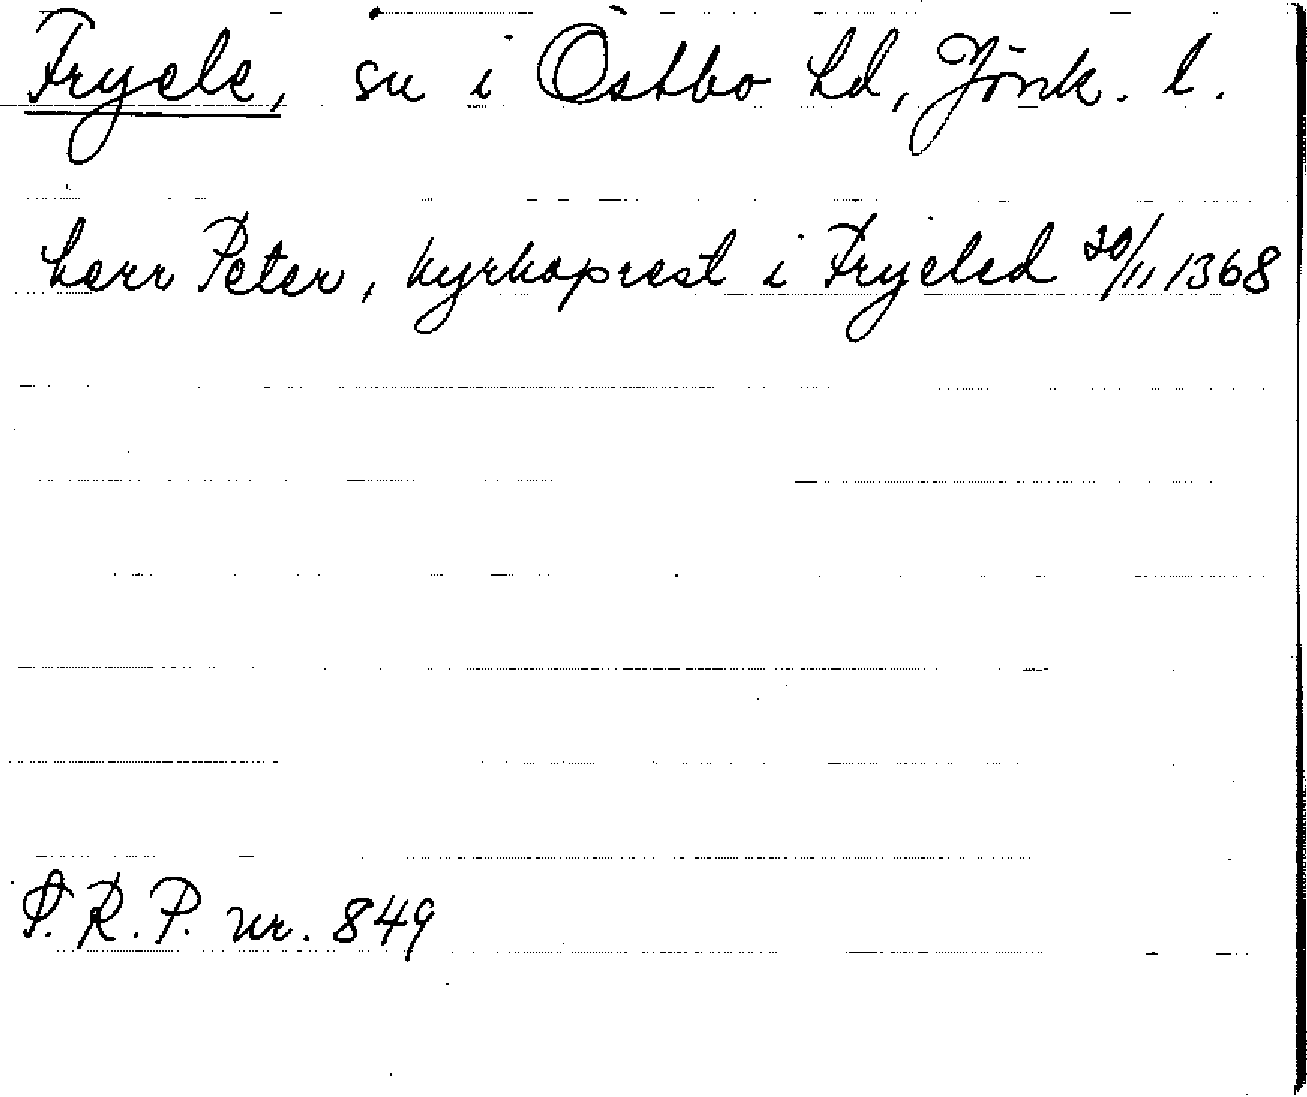 Fryele, sn i Östbo hd, Jönk. l.
herr Peter, kyrkoprest i Fryeled 20/11 1368
P.R.P. nr. 849